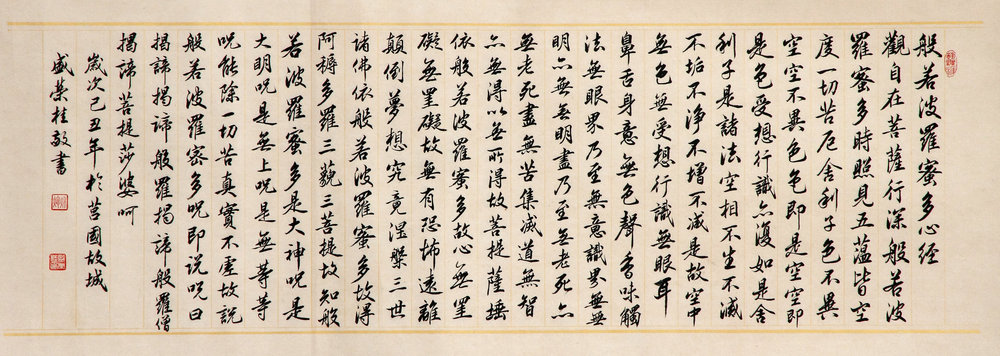 般若波羅蜜多心經
觀自在菩薩行深般若波
羅蜜多時照見五蘊皆空
度一切苦厄舍利子色不異
空空不異色色即是空空即
是色受想行識亦復如是舍
利子是諸法空相不生不滅
不垢不淨不增不減是故空中
無色無受想行識無眼耳
鼻舌身意無色聲香味觸
法無眼界乃至無意識界無無
明亦無無明盡乃至無老死亦
無老死盡無苦集滅道無智
亦無得以無所得故菩提薩埵
依般若波羅蜜多故心無罣
礙無罣礙故無有恐怖遠離
顛倒夢想究竟涅槃三世
諸佛依般若波羅蜜多故得
阿耨多羅三藐三菩提故知般
若波羅蜜多是大神呪是
大明呪是無上呪是無等等
呪能除一切苦真實不虛故說
般若波羅密多呪即說呪曰
揭諦揭諦般羅揭諦般羅僧
揭諦菩提莎婆呵
歲次己丑年於莒國故城
盛榮桂敬書